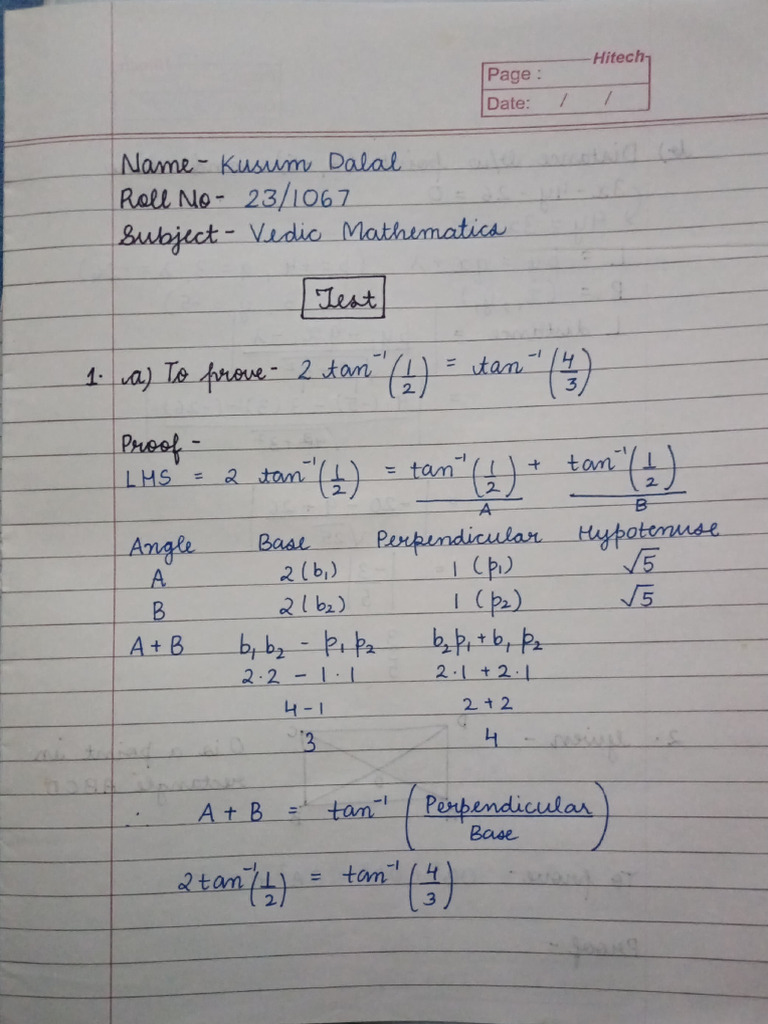 Hitech
Page :
Date: / /
Name - Kusum Dalal
Roll No - 23/1067
Subject - Vedic Mathematics
Test
1. a) To prove - 2 tan⁻¹(1/2) = tan⁻¹(4/3)
Proof -
LHS = 2 tan⁻¹(1/2) = tan⁻¹(1/2) + tan⁻¹(1/2)
A B
Angle Base Perpendicular Hypotenuse
A 2(b₁) 1(p₁) √5
B 2(b₂) 1(p₂) √5
A+B b₁b₂ - p₁p₂ b₂p₁ + b₁p₂
2·2 - 1·1 2·1 + 2·1
4-1 2+2
3 4
∴ A + B = tan⁻¹(Perpendicular/Base)
2tan⁻¹(1/2) = tan⁻¹(4/3)